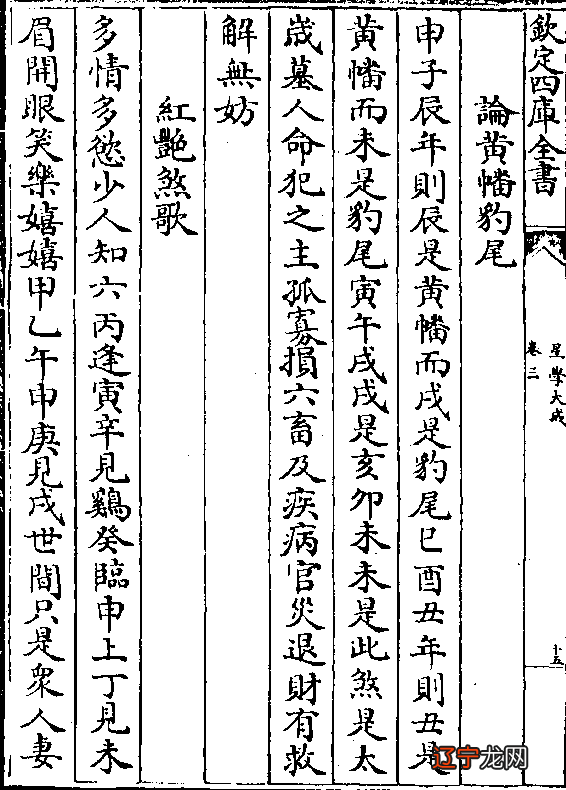 欽定四庫全書
星學大成
卷三
十五
論黄幡豹尾
申子辰年則辰是黄幡而戌是豹尾巳酉丑年則丑是
黄幡而未是豹尾寅午戌戌是亥卯未未是此煞是太
歲墓人命犯之主孤寡損六畜及疾病官災退財有救
解無妨
紅艷煞歌
多情多慾少人知六丙逢寅辛見鷄癸臨申上丁見未
眉開眼笑樂嬉嬉甲乙午申庚見戌世間只是衆人妻
辽宁龙网